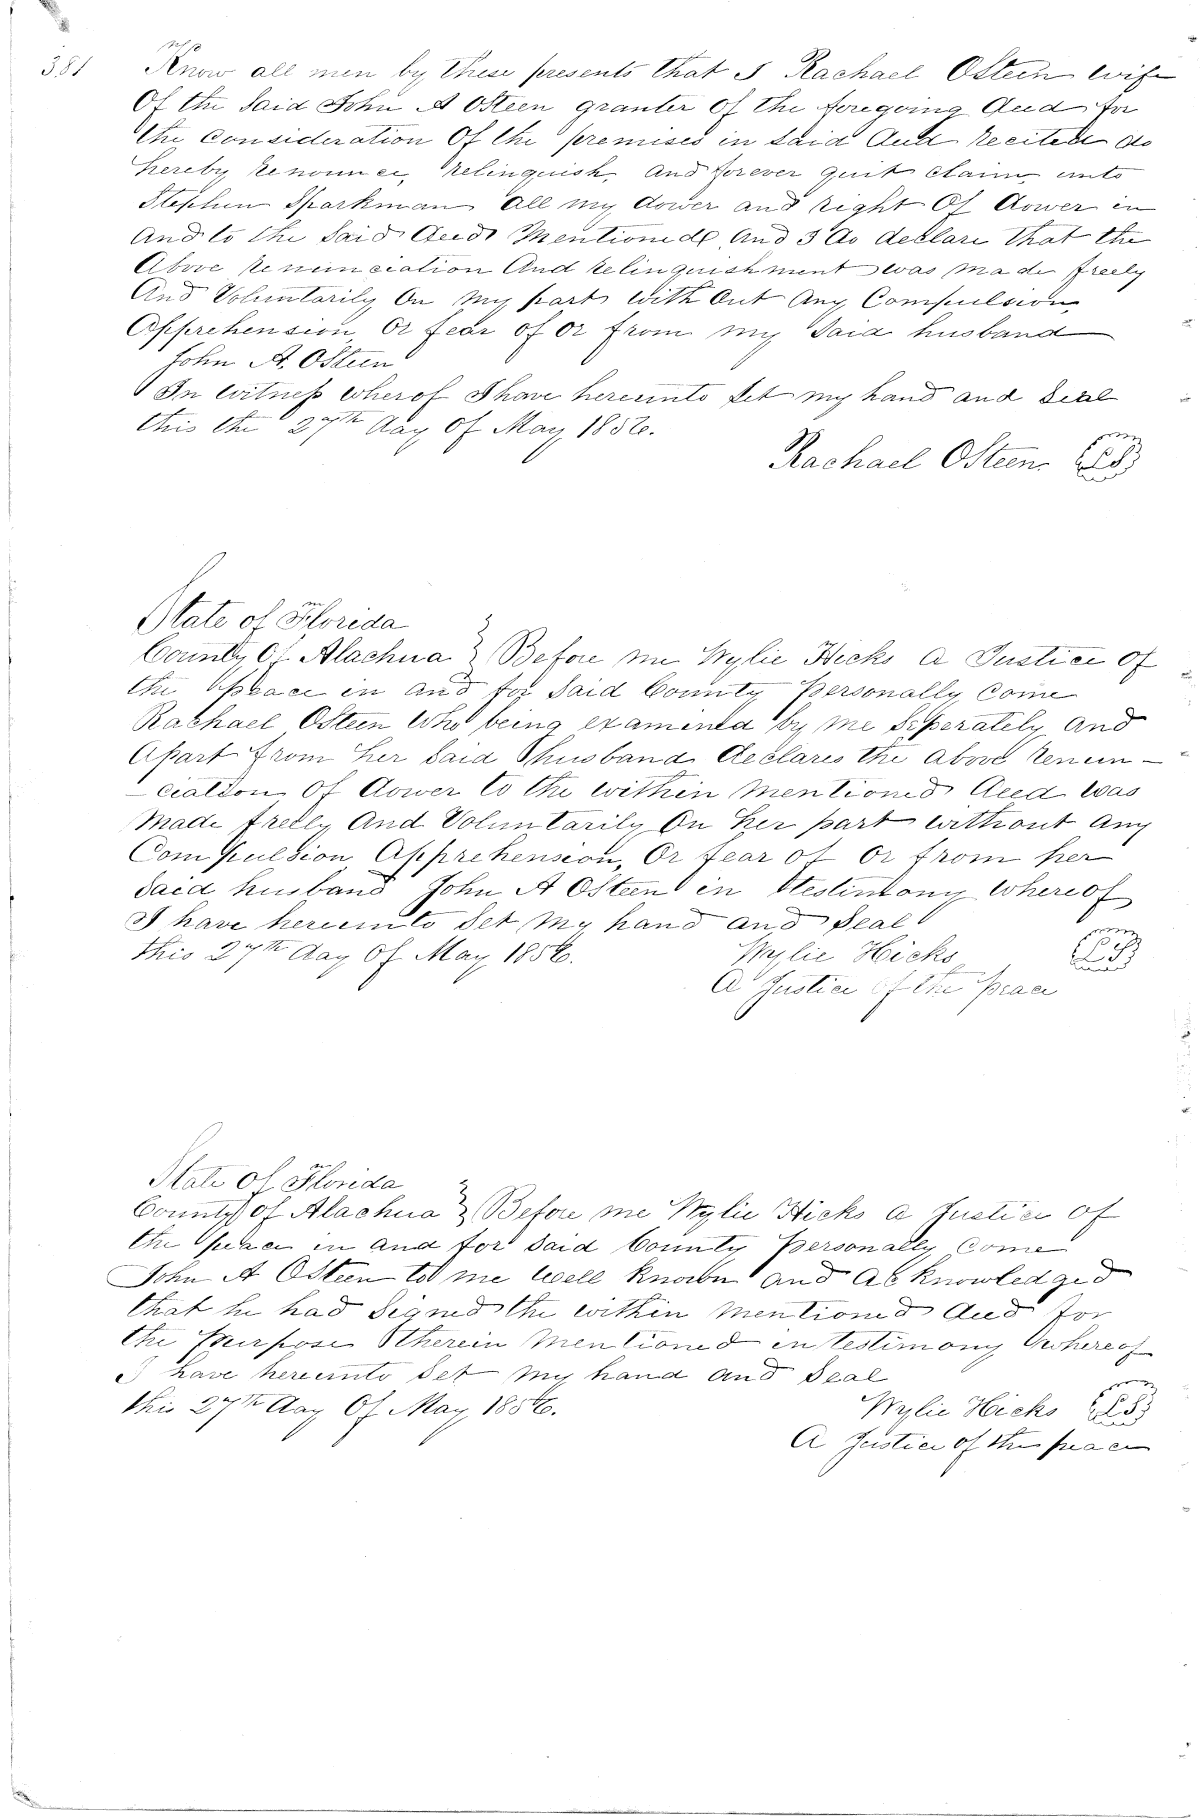 381 Know all men by these presents that I Rachael Osteen wife
Of the Said John A Osteen granter Of the foregoing deed for
the consideration Of the premises in Said deed recited do
hereby renounce, relinquish, and forever quit claim unto
Stephen Sparkman all my dower and right Of dower in
And to the Said deed Mentioned And I do declare that the
Above renunciation And relinquishment was made freely
And Voluntarily On my part with Out Any Compulsion
Apprehension, Or fear of or from my Said husband
John A. Osteen
In witness wherof I have hereunto Set my hand and Seal
this the 27th day Of May 1856.
Rachael Osteen LS
State of Florida
County Of Alachua } Before me Wylie Hicks a Justice Of
the peace in and for Said County personally Come
Rachael Osteen Who being examined by me Seperately And
Apart from her Said husband declares the above renun-
-ciation Of dower to the within mentioned deed was
made freely And Voluntarily On her part without any
Compulsion, Apprehension, Or fear of Or from her
Said husband John A Osteen in testimony whereof
I have hereunto Set my hand and Seal
this 27th day Of May 1856.
Wylie Hicks LS
A Justice of the peace
State Of Florida
County of Alachua } Before me Wylie Hicks a Justice Of
the peace in and for Said County personally Come
John A Osteen to me well known and acknowledged
that he had Signed the within mentioned deed for
the purpose therein mentioned in testimony whereof
I have hereunto Set my hand and Seal
this 27th day Of May 1856.
Wylie Hicks LS
A Justice of the peace